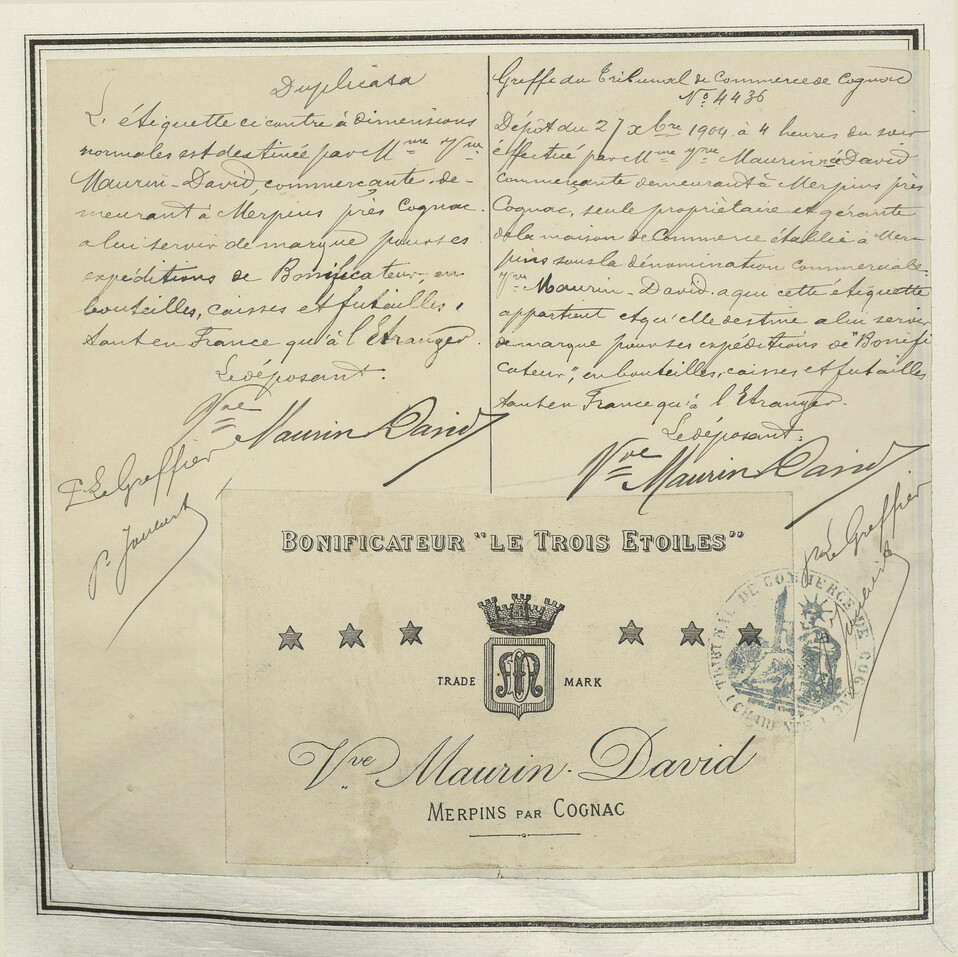 Duplicata
L'étiquette ci contre à dimensions
normales est destinée par Mme Vve
Maurin-David, commerçante, de-
meurant à Merpins près Cognac.
a lui servir de marque pour ses
expéditions de Bonificateur, en
bouteilles, caisses et futailles,
tant en France qu'à l'Etranger.
Le déposant.
Vve Maurin David
Le Greffier
Greffe du Tribunal de Commerce de Cognac
No 4436
Dépôt du 27 Xbre 1904 à 4 heures du soir
effectué par Mme Vve Maurin née David
commerçante demeurant à Merpins près
Cognac, seule propriétaire et gérante
de la maison de Commerce établie à Mer-
pins sous la dénomination commerciale
Vve Maurin-David. a qui cette étiquette
appartient et qu'elle destine a lui servir
de marque pour ses expéditions de "Bonifi
cateur", en bouteilles, caisses et futailles
tant en France qu'à l'Etranger.
Le déposant:
Vve Maurin David
Le Greffier
BONIFICATEUR "LE TROIS ETOILES"
TRADE MARK
Vve Maurin-David
MERPINS PAR COGNAC
TRIBUNAL DE COMMERCE DE COGNAC
(CHARENTE)